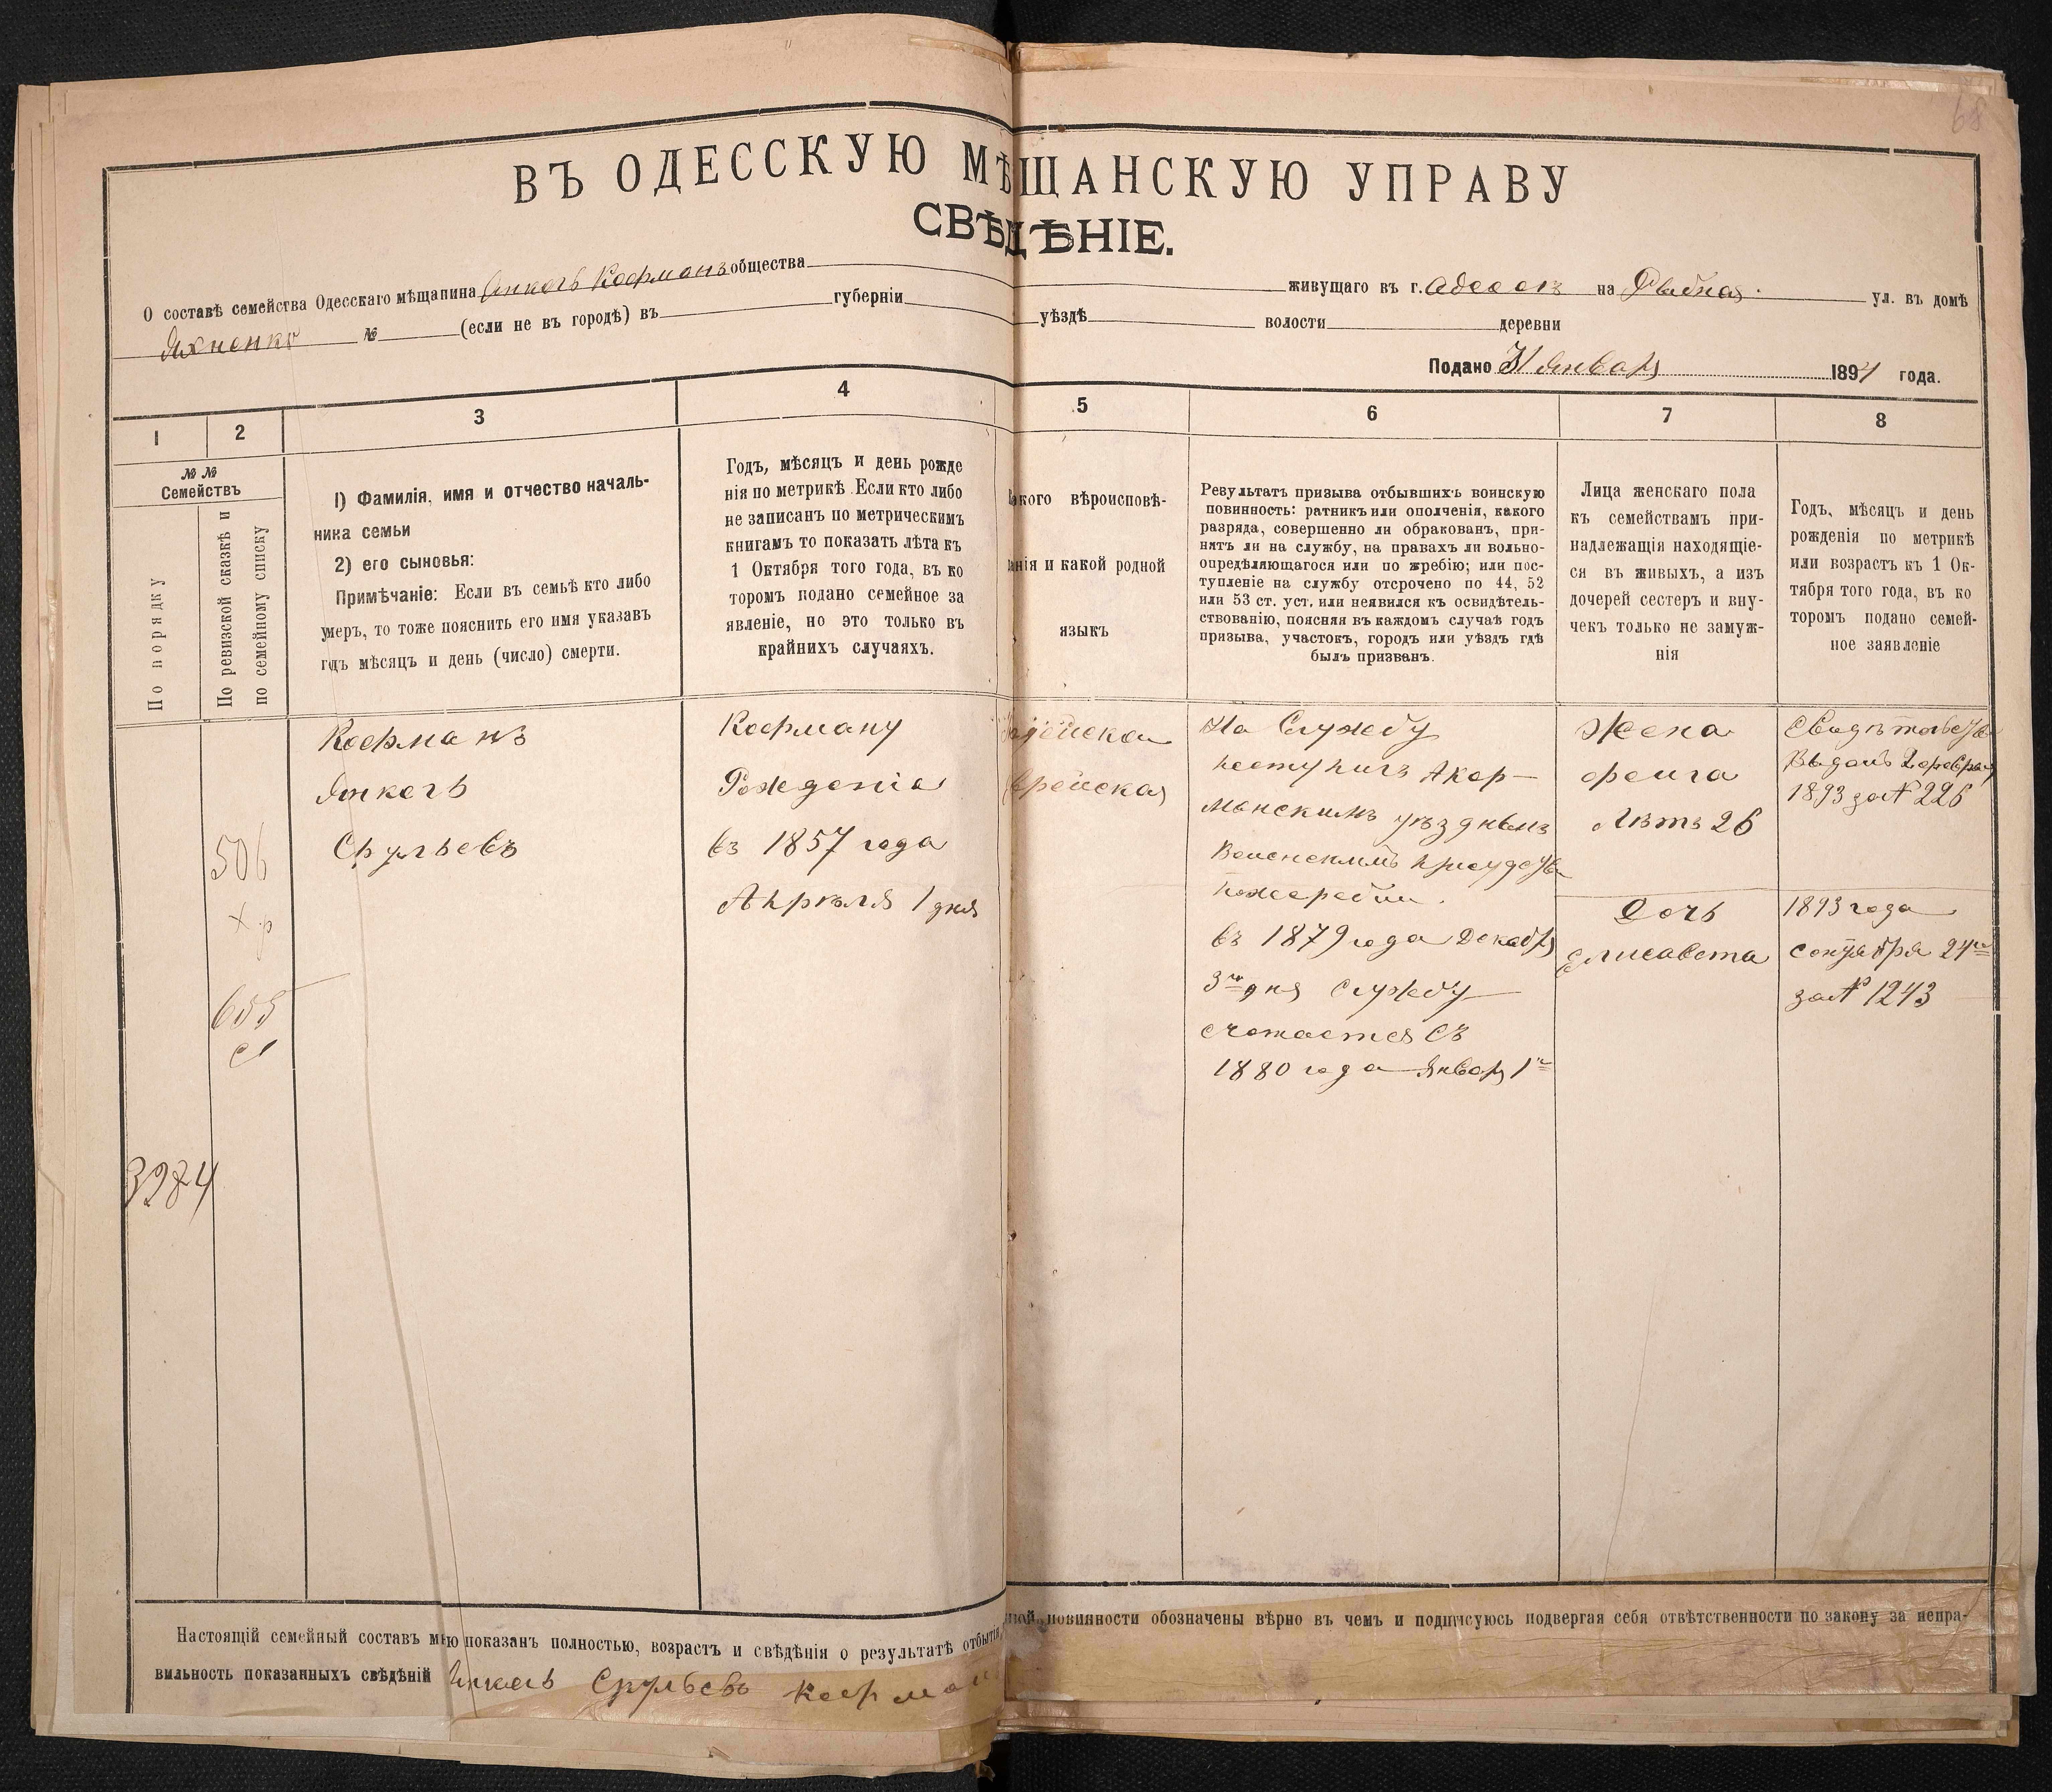 68
ВЪ ОДЕССКУЮ МѢЩАНСКУЮ УПРАВУ
СВѢДѢНІЕ.
О составѣ семейства Одесскаго мѣщанина Янкель Кофманъ общества живущаго въ г. Одессѣ на Рыбная ул. въ домѣ
Яхненко № (если не въ городѣ) въ губерніи уѣздѣ волости деревни
Подано 31 Январ 1894 года.
1 2 3 4 5 6 7 8
№ № Семействъ
По порядку
По ревизской сказкѣ и
по семейному списку
1) Фамилія, имя и отчество началь-
ника семьи
2) его сыновья:
Примѣчаніе: Если въ семьѣ кто либо
умеръ, то тоже пояснить его имя указавъ
годъ мѣсяцъ и день (число) смерти.
Годъ, мѣсяцъ и день рожде
нія по метрикѣ. Если кто либо
не записанъ по метрическимъ
книгамъ то показать лѣта къ
1 Октября того года, въ ко
торомъ подано семейное за
явленіе, но это только въ
крайнихъ случаяхъ.
какого вѣроисповѣ-
данія и какой родной
языкъ
Результатъ призыва отбывшихъ воинскую
повинность: ратникъ или ополченія, какого
разряда, совершенно ли обракованъ, при-
нятъ ли на службу, на правахъ ли вольно-
опредѣляющагося или по жребію; или пос-
тупленіе на службу отсрочено по 44, 52
или 53 ст. уст. или неявился къ освидѣтель-
ствованію, поясняя въ каждомъ случаѣ годъ
призыва, участокъ, городъ или уѣздъ гдѣ
былъ призванъ.
Лица женскаго пола
къ семействамъ при-
надлежащія находящіе-
ся въ живыхъ, а изъ
дочерей сестеръ и вну-
чекъ только не замуж-
нія
Годъ, мѣсяцъ и день
рожденія по метрикѣ
или возрастъ къ 1 Ок-
тября того года, въ ко
торомъ подано семей-
ное заявленіе
506
655
3984
Кофманъ
Янкель
Срульевъ
Кофману
Рожденія
въ 1857 года
Апрѣля 1 дня
Іудейская
Еврейская
На Службу
поступилъ Акер-
манскимъ уѣзднымъ
Воинскимъ присудств
пожеребіи.
въ 1879 года Декабр
3го дня Службу
счетается съ
1880 года Январ 1го
Жена
фейга
Лѣтъ 26
Дочь
Елисавета
Свидѣтельств
Выданъ 2 феврал
1893 за № 226
1893 года
сентября 24го
за № 1243
Настоящій семейный составъ мною показанъ полностью, возрастъ и свѣдѣнія о результатѣ отбытія повинности обозначены вѣрно въ чемъ и подписуюсь подвергая себя отвѣтственности по закону за непра-
вильность показанныхъ свѣдѣній Янкель Срульевъ Кофман